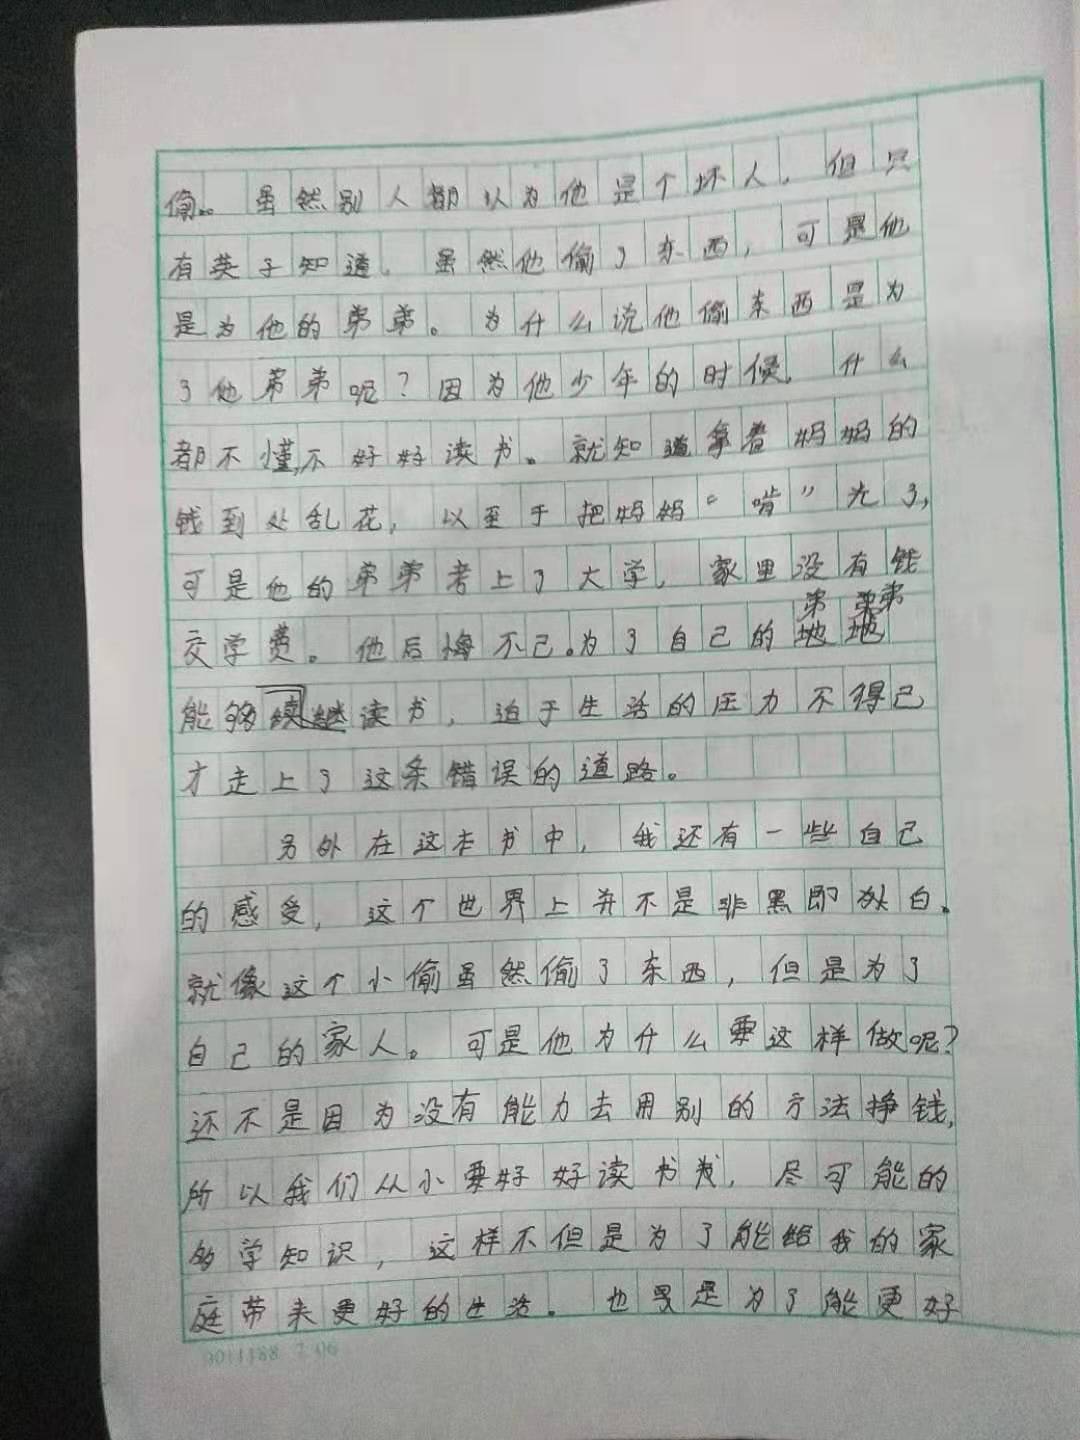 偷。虽然别人都以为他是个坏人,但只
有英子知道,虽然他偷了东西,可是他
是为他的弟弟。为什么说他偷东西是为
了他弟弟呢?因为他少年的时候,什么
都不懂,不好好读书。就知道拿着妈妈的
钱到处乱花,以至于把妈妈“啃”光了,
可是他的弟弟考上了大学,家里没有钱
弟弟弟
交学费。他后悔不已。为了自己的地地
能够续继读书,迫于生活的压力不得已
才走上了这条错误的道路。
另外在这本书中,我还有一些自己
的感受,这个世界上并不是非黑即白。
就像这个小偷虽然偷了东西,但是为了
自己的家人。可是他为什么要这样做呢?
还不是因为没有能力去用别的方法挣钱,
所以我们从小要好好读书,尽可能的
多学知识,这样不但是为了能给我的家
庭带来更好的生活。也是为了能更好
9011188 7.06